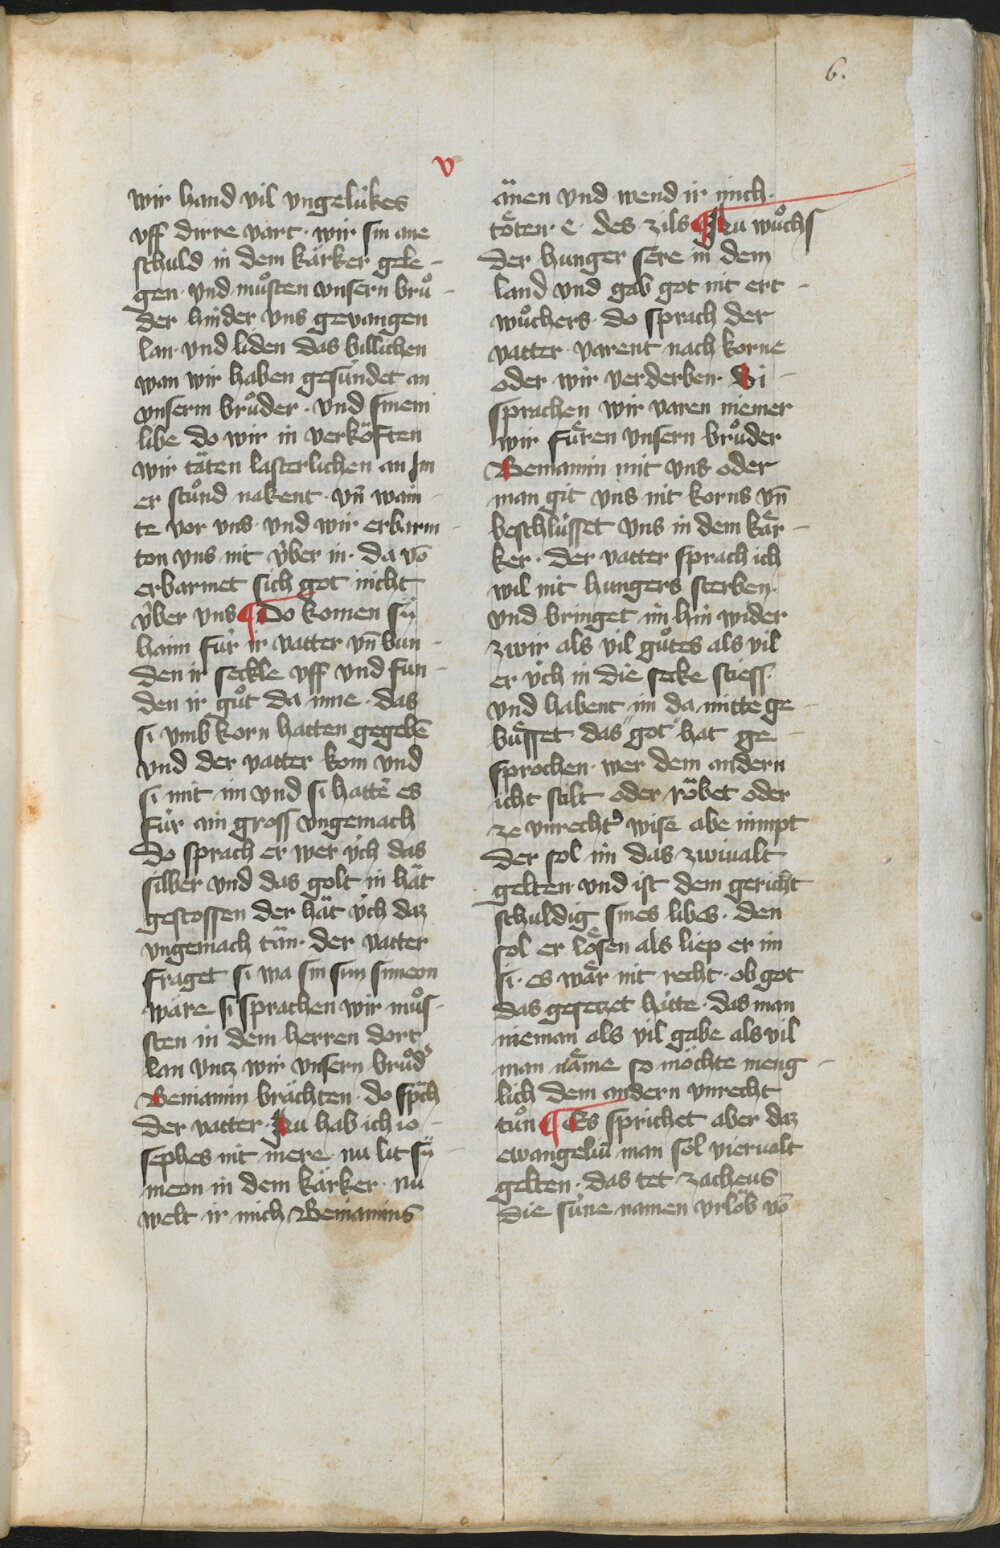 6.
v
wir hand vil vngelükes
vff dirre vart · wir sin ane
schuld in dem kärker gele -
gen · vnd muͦsten vnsern bruͦ -
der hinder vns gevangen
lan · vnd liden das billichen
wan wir haben gesündet an
vnserm bruͦder · vnd sinem
libe do wir in verköften
wir täten lasterlichen an Im
er stuͦnd nakent · vn̄ wain -
te vor vns · vnd wir erbarm -
ton vns nit v̈ber in · da vō
erbarmet sich got nicht
v̈ber vns ¶ Do komen sü
haim für ir vatter vn̄ bun -
den ir seckle vff vnd fun -
den ir guͦt da inne · das
si vmb korn hatten gegebē
vnd der vatter kom vnd
si mit im vnd si hattē es
für ain gross vngemach
do sprach er wer v̈ch das
silber vnd das golt in hät
gestossen der hät v̈ch daz
vngemach tän · der vatter
fraget si wa sin sun simeon
wäre si sprachen wir muͦs -
sten in dem herren dort
lan vntz wir vnsern bruͦd᾽
Beniamin brächten · do sp̄ch
der vatter · Nu hab ich io -
sephes nit mere nu lit sÿ -
meon in dem kärker · nu
welt ir mich Beniamins
änen vnd wend ir mich ·
töten · e · des zils ¶ Nu wuͦchs
der hunger sere in dem
land vnd gab got nit ert -
wuͦchers · do sprach der
vatter varent nach korne
oder wir verderben · Si -
sprachen wir varen niemer
wir füren vnsern bruͦder
Beniamin mit vns oder
man git vns nit korns vn̄
beschlüsset vns in dem kär -
ker · der vatter sprach ich
wil nit hungers sterben ·
vnd bringet im hin wider
zwir als vil guͦtes als vil
er v̈ch in die secke stiess ·
vnd habent im da mitte ge -
büsset das got hat ge -
sprochen · wer dem andern
icht stilt oder röbet oder
ze vnrecht᾽ wise abe nimpt
der sol im das zwiualt
gelten vnd ist dem gericht
schuldig sines libes · den
sol er lösen als liep er im
si · es wär nit recht · ob got
das gesetzet hätte · das man
nieman als vil gäbe als vil
man näme so möchte meng -
lich dem andern vnrecht
tuͦn ¶ Es sprichet aber daz
ewangeliū man sol vierualt
gelten · das tet · zacheus
die süne namen vrlob vō